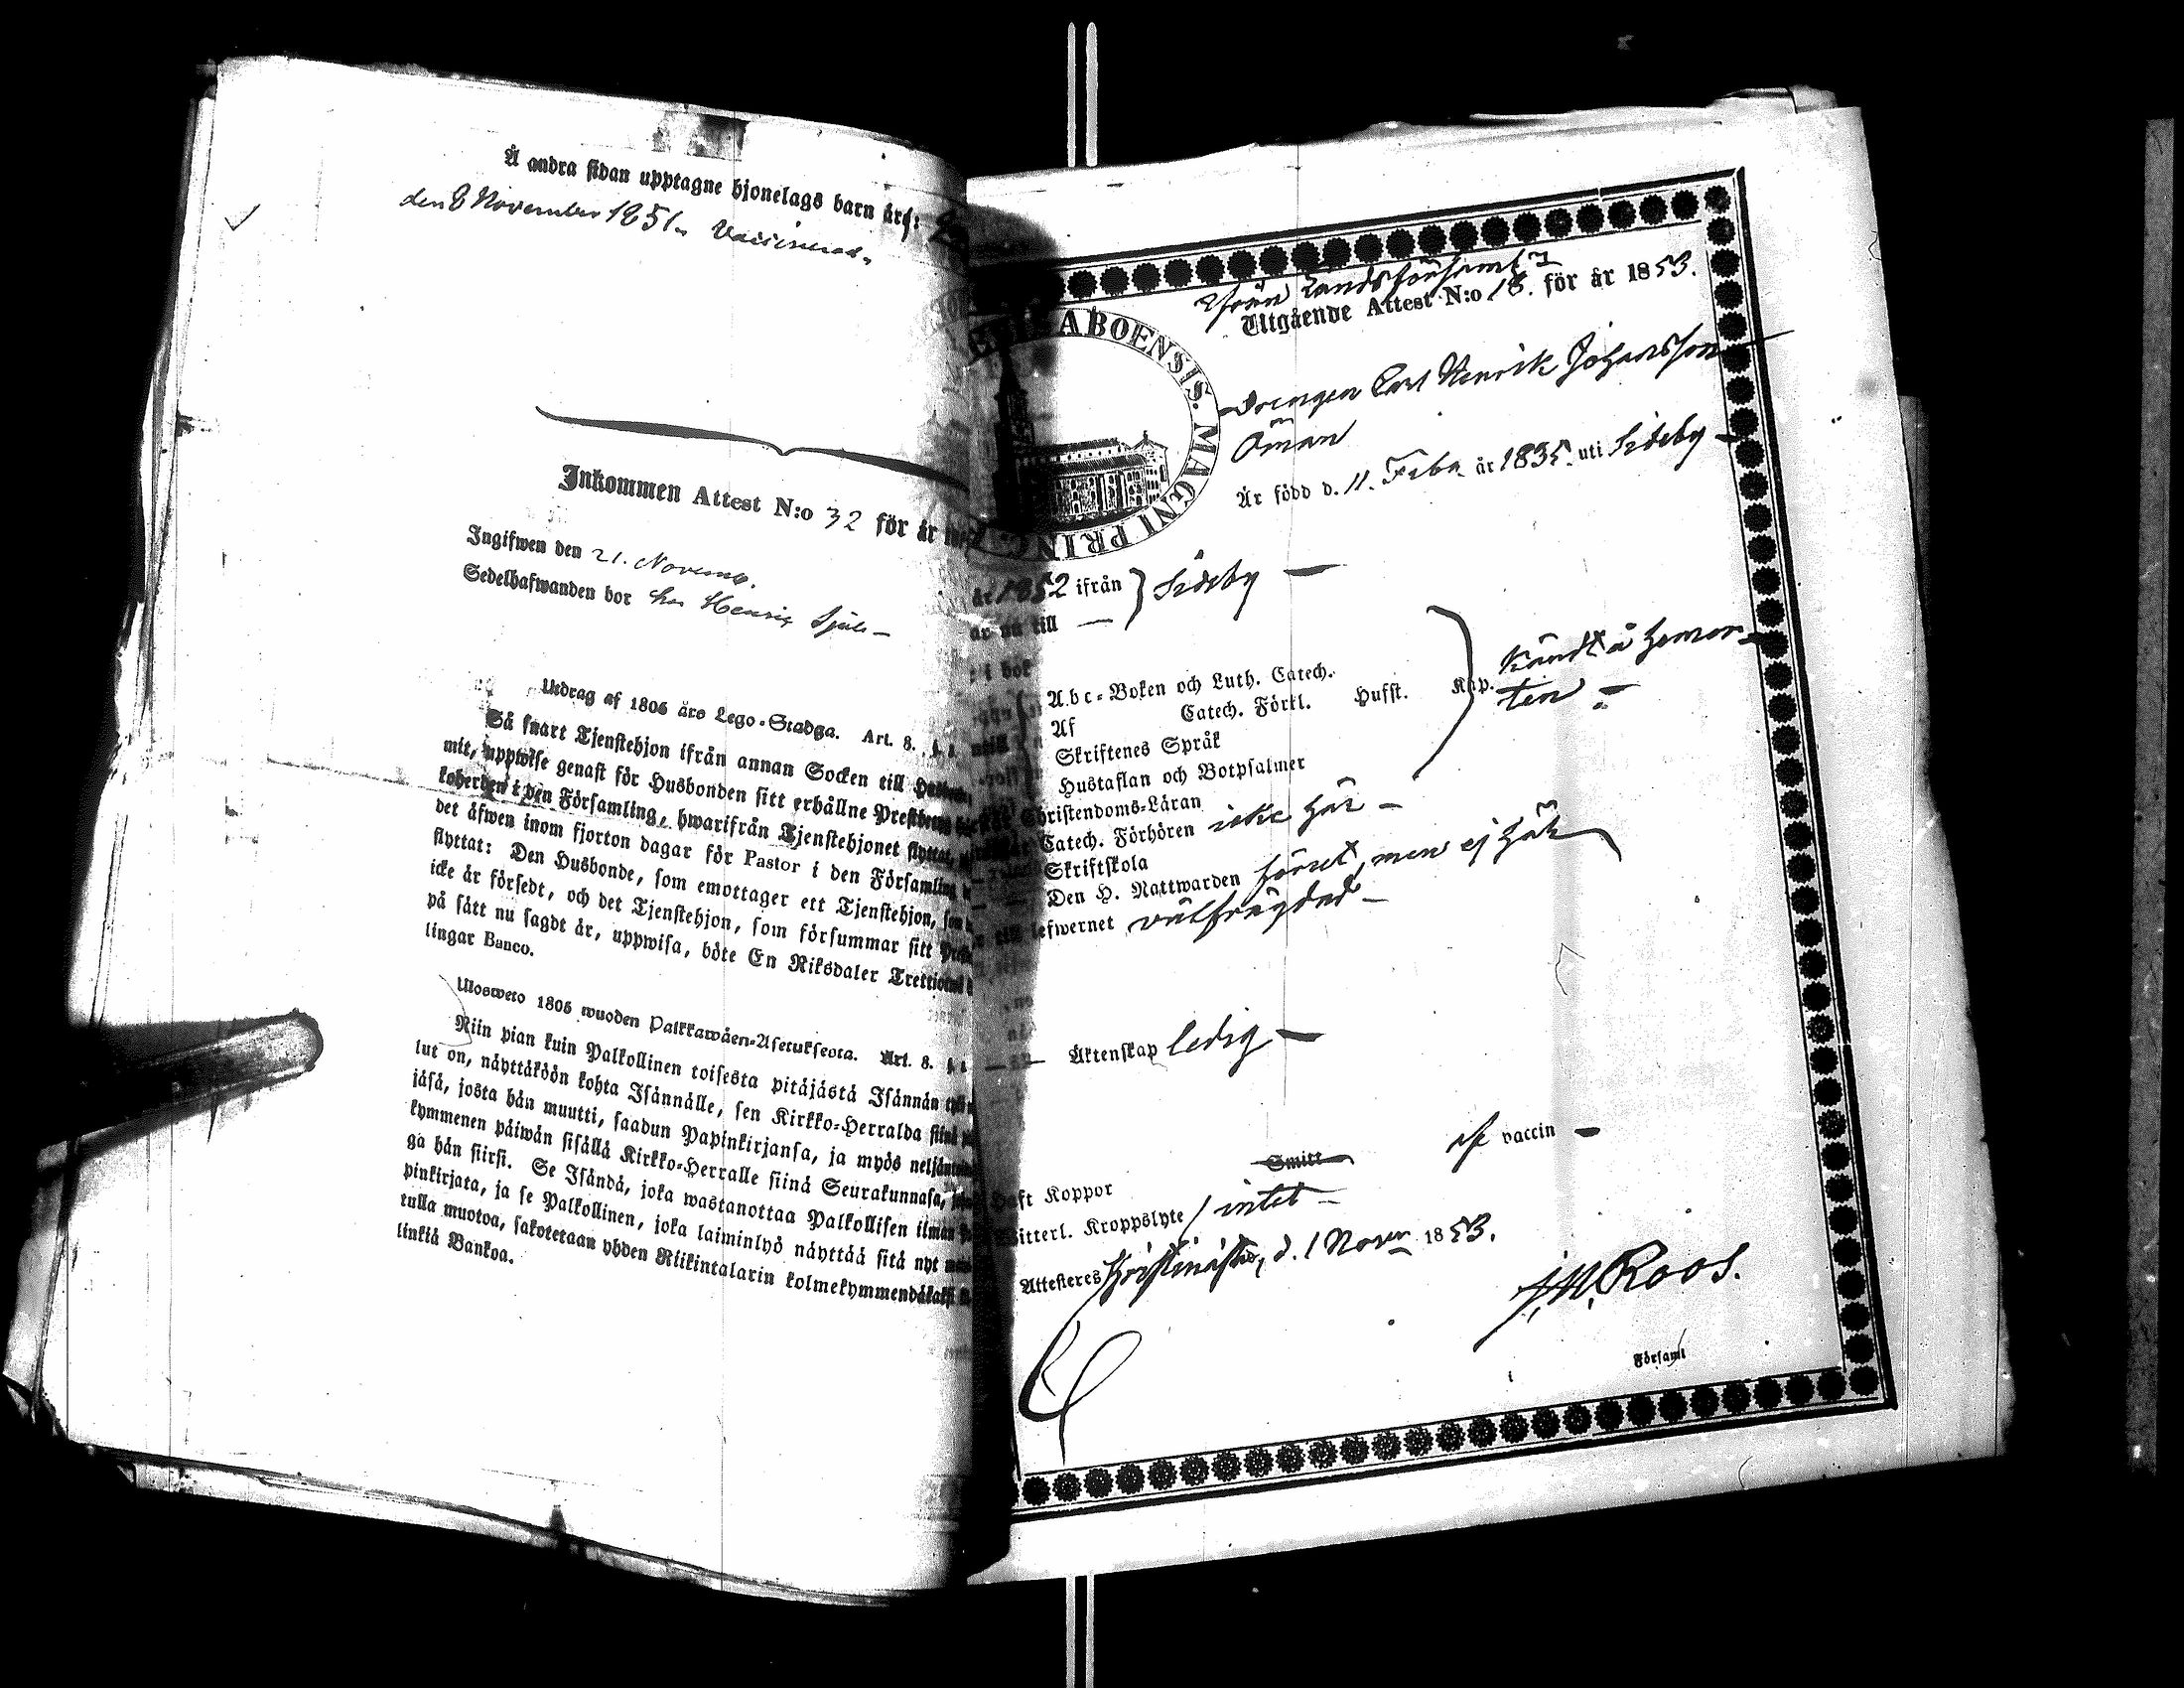 Å andra sidan upptagne hjonelags barn äro:
den 8 November 1851. Vaccinerad.
Inkommen Attest N:o 32 för år
Ingifwen den 21. Novemb.
Sedelhafwanden bor hos Henric
Utdrag af 1805 års Lego-Stadga. Art. 8.
Så snart Tjenstehjon ifrån annan Socken till
mit, uppwise genast för Husbonden sitt erhållne
koherden i den Församling, hwarifrån Tjenstehjonet flyttat,
det äfwen inom fjorton dagar för Pastor i den Församling
flyttat: Den Husbonde, som emottager ett Tjenstehjon, som
icke är försedt, och det Tjenstehjon, som försummar sitt
på sätt nu sagdt är, uppwisa, böte En Riksdaler
lingar Banco.
Ulosweto 1805 wuoden Palkkawäen-Asetuksesta. Art. 8.
Niin pian kuin Palkollinen toisesta pitäjästä Isännän
lut on, näyttäköön kohta Isännälle, sen Kirkko-Herralda
jäsä, josta hän muutti, saadun Papinkirjansa, ja myös
kymmenen päiwän sisällä Kirkko-Herralle siinä Seurakunnasa,
ga hän siirsi. Se Isändä, joka wastanottaa Palkollisen ilman
pinkirjata, ja se Palkollinen, joka laiminlyö näyttää sitä nyt
tulla muotoa, sakotetaan yhden Riikintalarin
linkiä Bankoa.
ABOENSIS. MAGNI PRINC
från Landsförsaml
Utgående Attest N:o 18. för år 1853.
Drengen Carl Henrik Johansson
Öman
Är född d. 11. Feb. år 1835. uti Sideby
år 1852 ifrån } Sideby —
är nu till —
i bok
Abc-Boken och Luth. Catech.
Af Catech. Förkl. Hufst. Kap.
Skriftenes Språk
Hustaflan och Botpsalmer
kändt å hemor-
ten —
Christendoms-Läran
Catech. Förhören icke här —
Skriftskola
Den H. Nattwarden förut, men ej här
till lefwernet välfrägdad —
Äktenskap ledig —
Haft Koppor Smitt af vaccin —
Witterl. Kroppslyte / intet —
Attesteres Christinestad, d. 1 Novr 1853.
J. M. Roos.
Församl